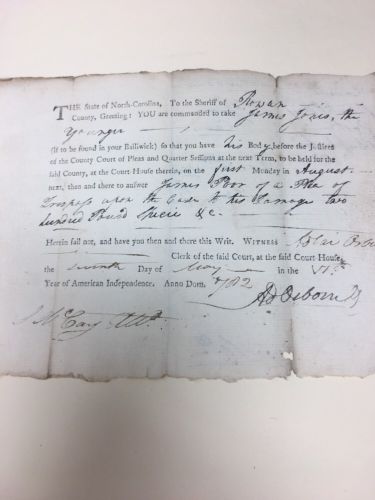 THE State of North-Carolina, To the Sheriff of Rowan
County, Greeting: YOU are commanded to take James Jones, the
Younger
(If to be found in your Bailiwick) so that you have his Body before the Justices
of the County Court of Pleas and Quarter Sessions at the next Term, to be held for the
said County, at the Court House therein, on the first Monday in August
next, then and there to answer James Poor of a Plea of
Trespass upon the Case to his Damage two
hundred Pound Specie &c.
Herein fail not, and have you then and there this Writ. WITNESS Adlai Osborn
Clerk of the said Court, at the said Court House
the seventh Day of May in the VI
Year of American Independence. Anno Dom. 1782
Ad Osborn
McCay Att